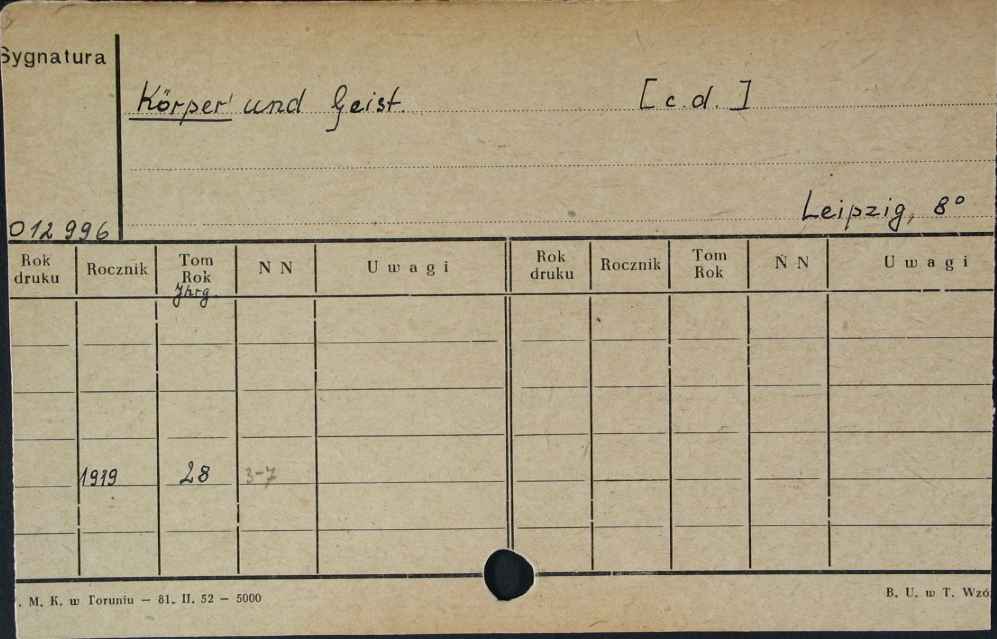 Sygnatura
Körper und Geist. [c.d.]
Leipzig, 8°
012996
Rok druku Rocznik Tom Rok N N Uwagi Rok druku Rocznik Tom Rok N N Uwagi
Jhrg.
1919 28 3-7
. M. K. w Toruniu — 81. II. 52 — 5000 B. U. w T. Wzó